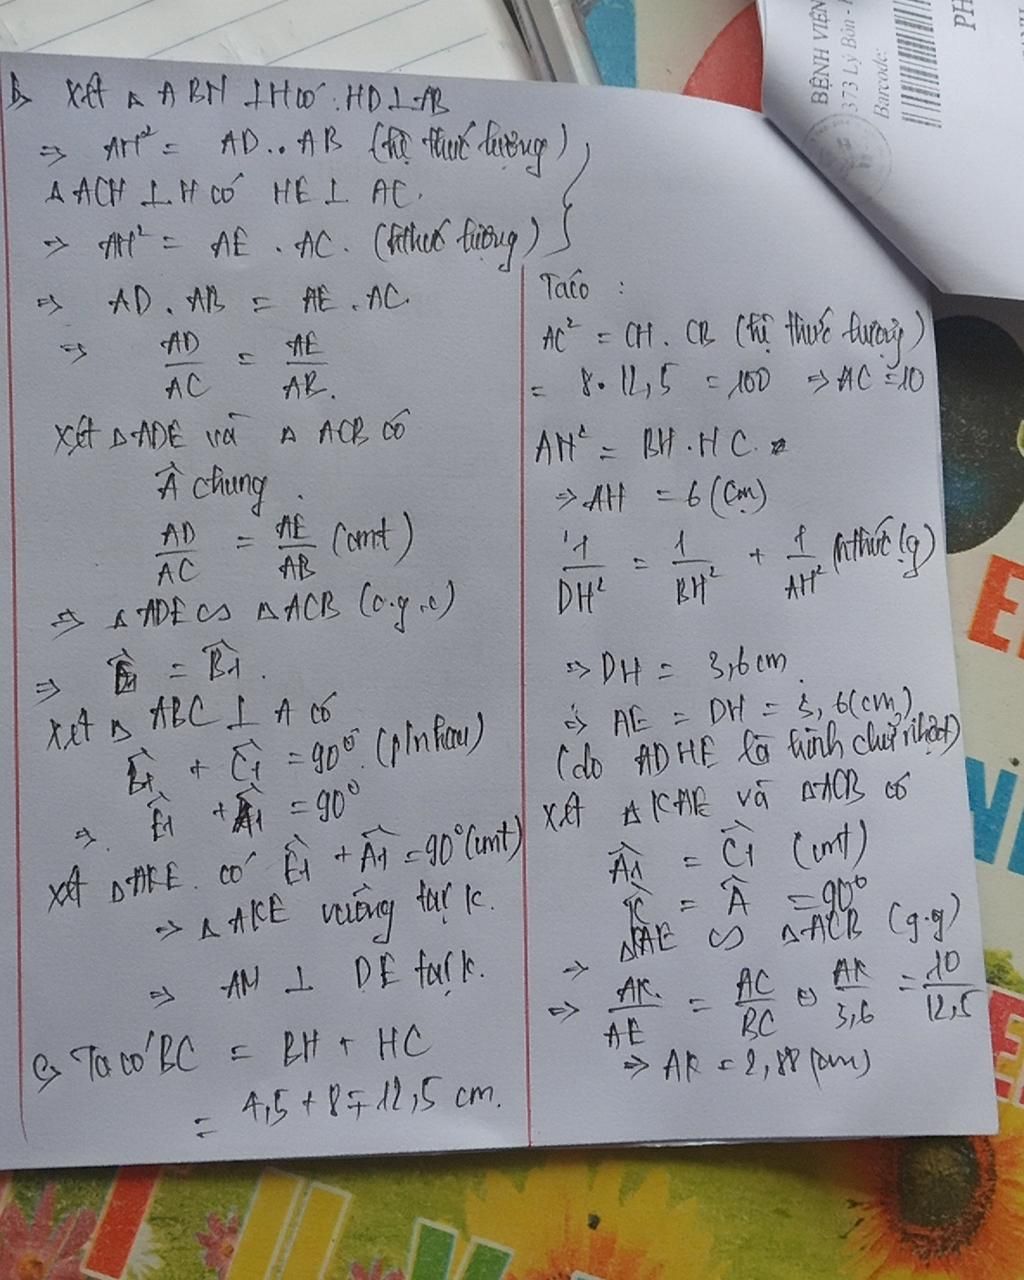 b, Xét Δ ABH ⊥ H có HD ⊥ AB
=> AH² = AD . AB (hệ thức lượng)
Δ ACH ⊥ H có HE ⊥ AC.
=> AH² = AE . AC. (hthức lượng)
=> AD . AB = AE . AC
=> AD/AC = AE/AB.
Xét Δ ADE và Δ ACB có
Â chung.
AD/AC = AE/AB (cmt)
=> Δ ADE ∽ Δ ACB (c.g.c)
=> Ê1 = B̂1.
Xét Δ ABC ⊥ A có
B̂1 + Ĉ1 = 90° (phụ nhau)
=> Ê1 + Â1 = 90°
Xét Δ AKE có Ê1 + Â1 = 90° (cmt)
=> Δ AKE vuông tại K.
=> AM ⊥ DE tại K.
c, Ta có BC = BH + HC
= 4,5 + 8 = 12,5 cm.
Ta có :
AC² = CH . CB (hệ thức lượng)
= 8 . 12,5 = 100 => AC = 10
AH² = BH . HC.
=> AH = 6 (cm)
1/DH² = 1/BH² + 1/AH² (hthức lg)
=> DH = 3,6 cm.
=> AE = DH = 3,6 (cm)
(do ADHE là hình chữ nhật)
Xét Δ KAE và Δ ACB có
Â1 = Ĉ1 (cmt)
K̂ = Â = 90°
=> Δ KAE ∽ Δ ACB (g.g)
=> AK/AE = AC/BC ⇔ AK/3,6 = 10/12,5
=> AK = 2,88 (cm)
BỆNH VIỆN
373 Lý Bôn -
Barcode:
PH